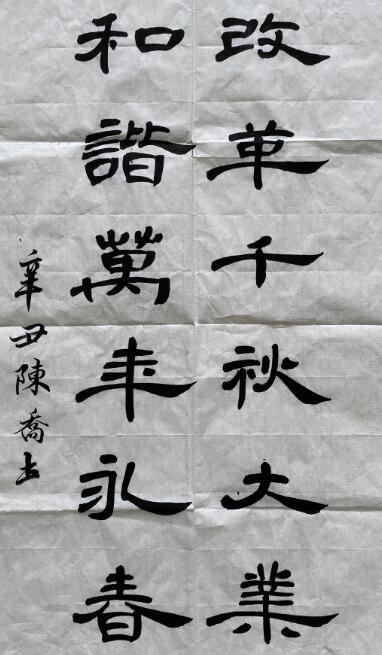 改革千秋大業
和諧萬年永春
辛丑陳喬书